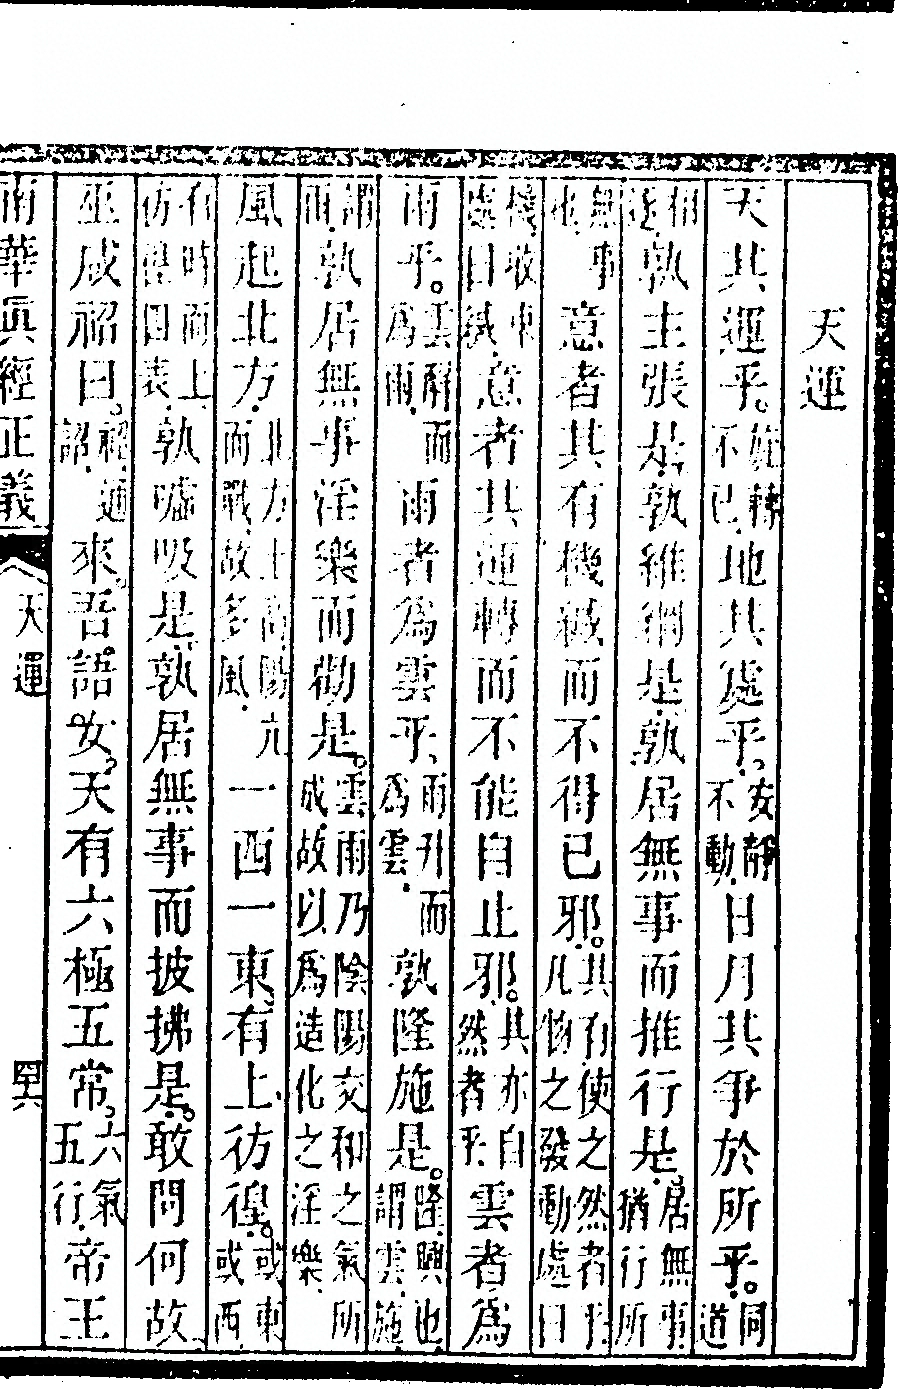 天運
天其運乎。旋轉不已地其處乎。安靜不動日月其爭於所乎。同道
相逐孰主張是孰維綱是孰居無事而推行是居無事猶行所
無事也意者其有機緘而不得已邪。其有使之然者乎凡物之發動處曰
機收束處曰緘意者其運轉而不能自止邪。其亦自然者乎雲者爲
雨乎。雲解而爲雨雨者爲雲乎雨升而爲雲孰隆施是。隆興也謂雲施
謂雨孰居無事淫樂而勸是。雲雨乃陰陽交和之氣所成故以爲造化之淫樂
風起北方北方土高陽亢而戰故多風一西一東有上彷徨。或東或西
有時而上彷徨四表孰噓吸是孰居無事而披拂是。敢問何故
巫咸祒曰。祒通詔來。吾語女。天有六極五常。六氣五行帝王
南華眞經正義 天運 四十六